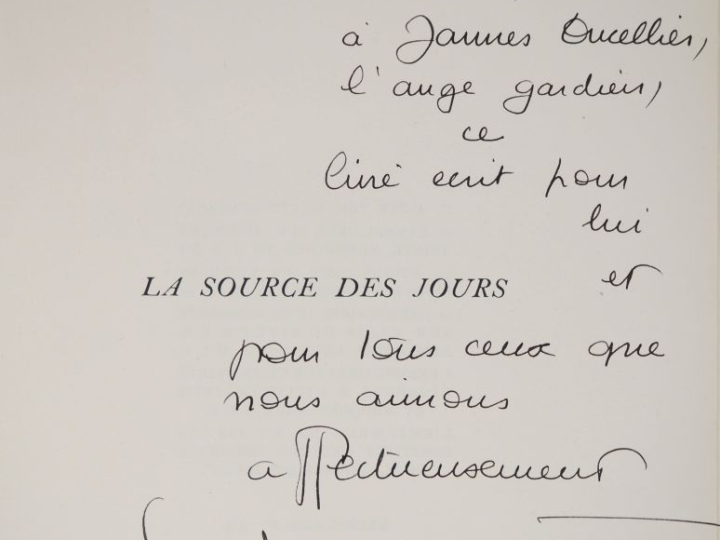 à Jannes Ducellier,
l'ange gardien,
ce
livre écrit pour
lui
LA SOURCE DES JOURS
et
pour tous ceux que
nous aimons
affectueusement